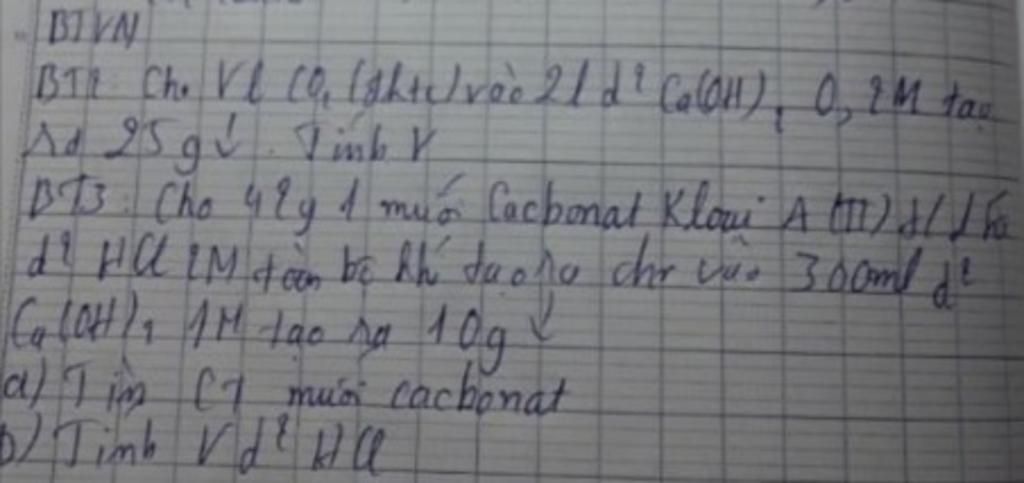 BTVN
BT2: Cho Vl CO2 (đktc) vào 2l d² Ca(OH)2 0,2M tạo
ra 25g↓. Tính V
BT3: Cho 42g 1 muối Cacbonat Kloại A (II) t/d
d² HCl 2M toàn bộ khí tạo ra cho vào 300ml d²
Ca(OH)2 1M tạo ra 10g ↓
a) Tìm CT muối cacbonat
b) Tính V d² HCl